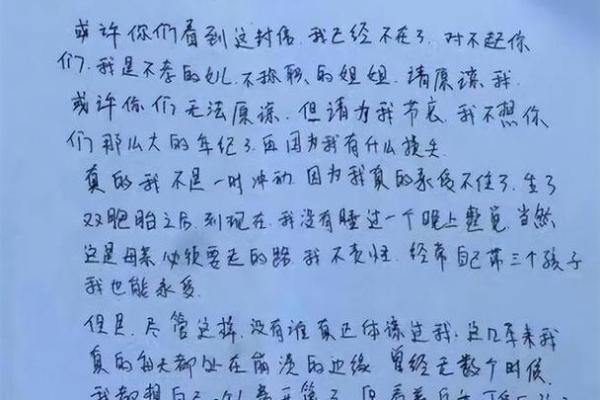 或许你们看到这封信.我已经不在了.对不起你
们.我是不孝的女儿.不称职.的姐姐.请原谅我.
或许你们无法原谅.但请为我节哀.我不想你
们那么大的年纪了.再因为我有什么损失
真的我不是一时冲动.因为我真的承受不住了.生了
双胞胎之后.到现在.我没有睡过一个晚上整觉.当然
这是母亲必须要走的路.我不责怪.经常自己带三个孩子
我也能承受.
但是.尽管这样.没有谁真正体谅过我.这几年来我
真的每天都处在崩溃的边缘.曾经无数个时候.
我都想自己